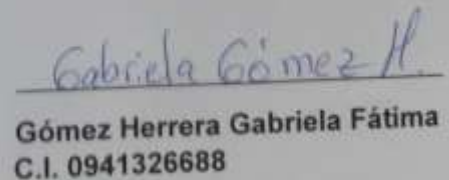 Gabriela Gómez H.
Gómez Herrera Gabriela Fátima
C.I. 0941326688